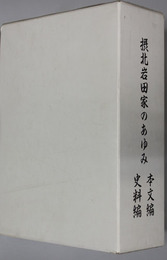 摂北岩田家のあゆみ
本文編
史料編